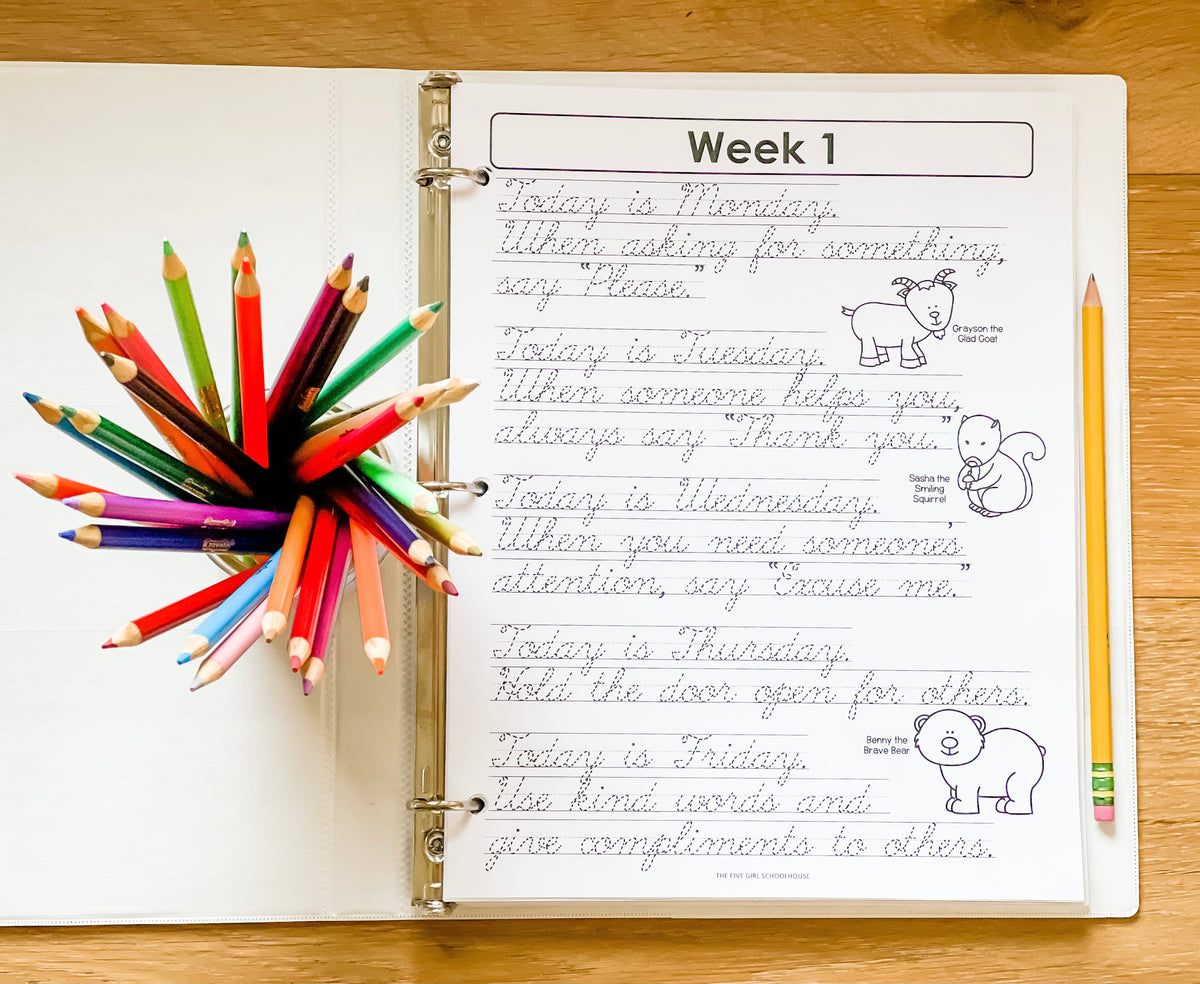 Week 1
Today is Monday.
When asking for something,
say "Please."
Grayson the
Glad Goat
Today is Tuesday.
When someone helps you,
always say "Thank you."
Sasha the
Smiling
Squirrel
Today is Wednesday.
When you need someones'
attention, say "Excuse me."
Today is Thursday.
Hold the door open for others.
Benny the
Brave Bear
Today is Friday.
Use kind words and
give compliments to others.
THE FIVE GIRL SCHOOLHOUSE